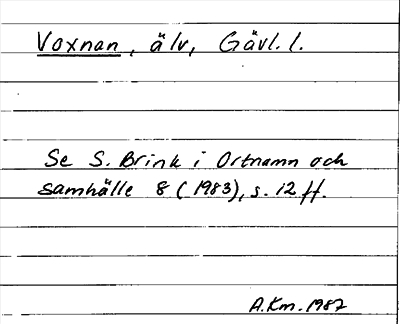 Voxnan, älv, Gävl. l.
Se S. Brink i Ortnamn och
samhälle 8 (1983), s. 12 ff.
A.Km. 1987